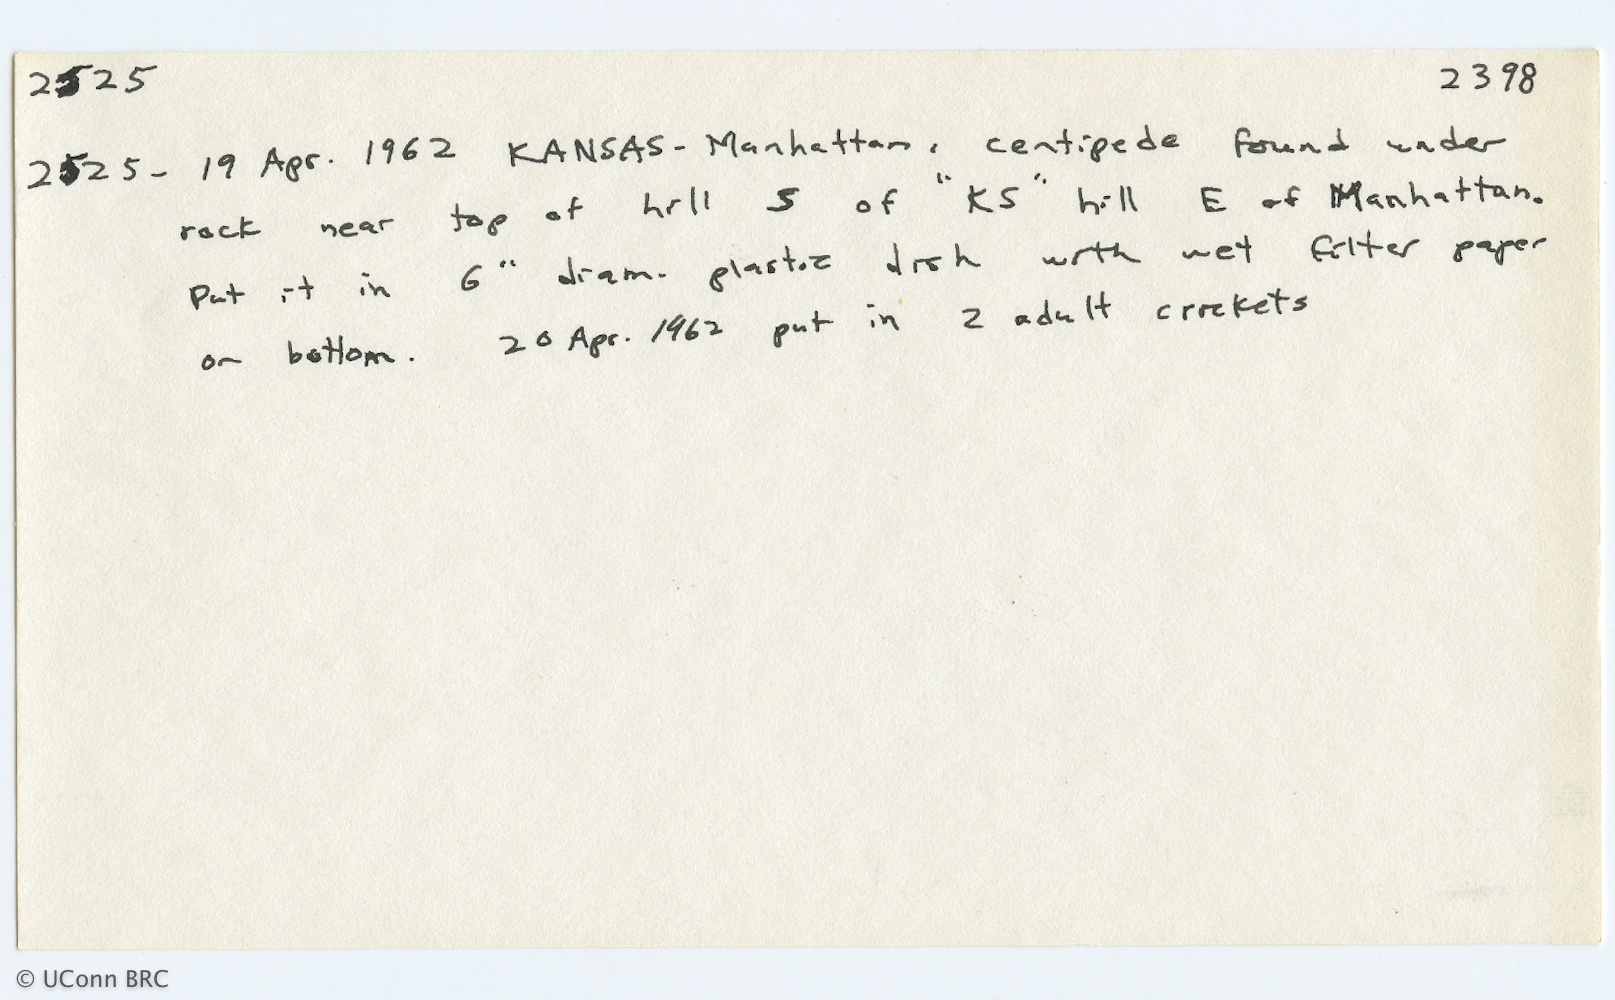 2525 2398
2525- 19 Apr. 1962 KANSAS- Manhattan. centipede found under
rock near top of hill S of "KS" hill E of Manhattan.
Put it in 6" diam. plastic dish with wet filter paper
on bottom. 20 Apr. 1962 put in 2 adult crickets
© UConn BRC